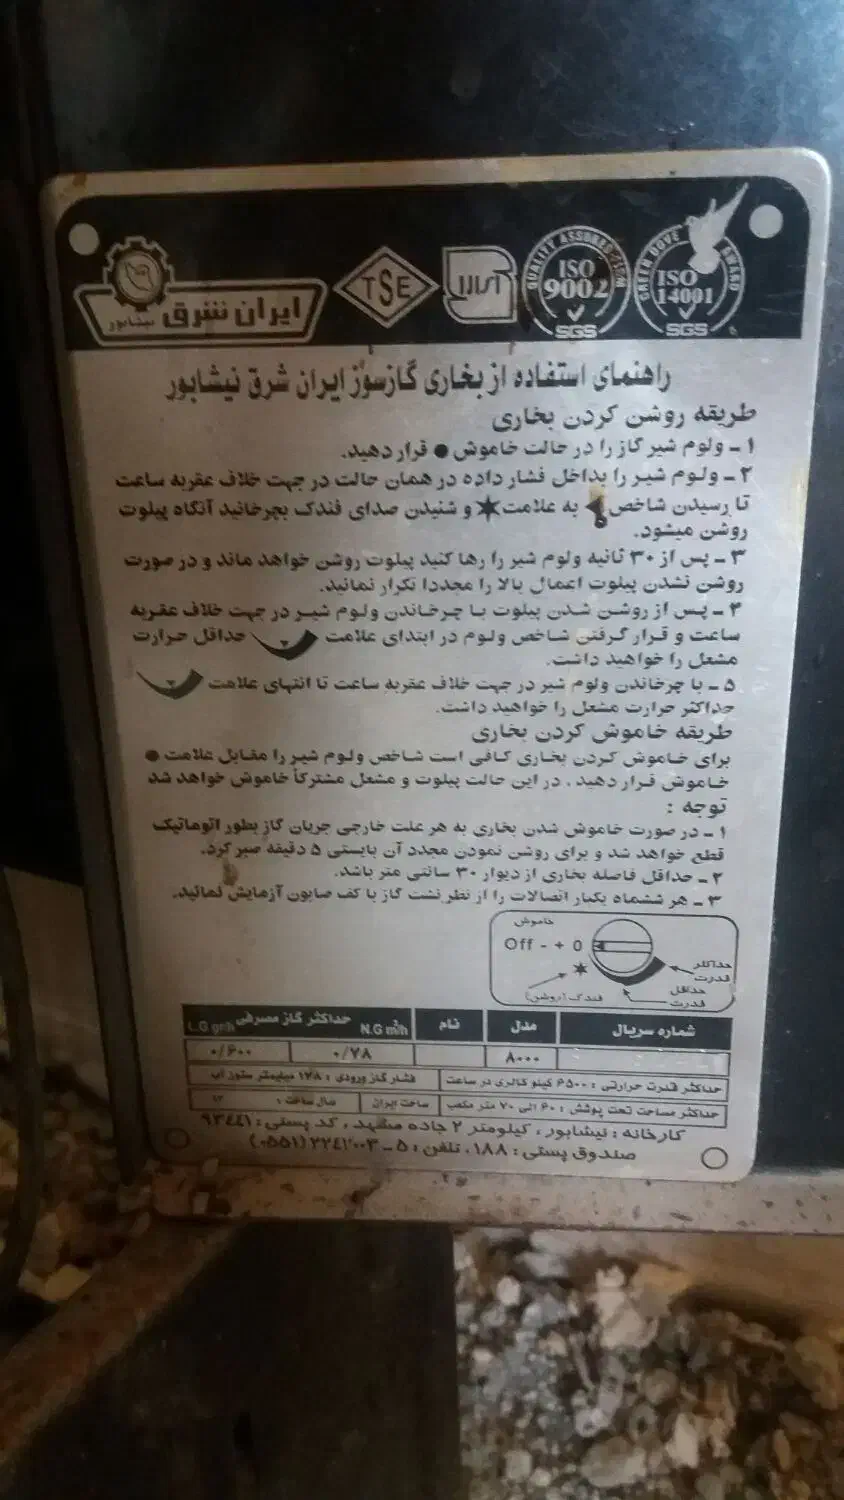 ایران شرق نیشابور
TSE
QUALITY ASSURED FIRM
ISO 9002
SGS
GREEN DOVE AWARD
ISO 14001
SGS
راهنمای استفاده از بخاری گازسوز ایران شرق نیشابور
طریقه روشن کردن بخاری
۱ـ ولوم شیر گاز را در حالت خاموش ● قرار دهید.
۲ـ ولوم شیر را بداخل فشار داده در همان حالت در جهت خلاف عقربه ساعت
تا رسیدن شاخص به علامت و شنیدن صدای فندک بچرخانید آنگاه پیلوت
روشن میشود.
۳ـ پس از ۳۰ ثانیه ولوم شیر را رها کنید پیلوت روشن خواهد ماند و در صورت
روشن نشدن پیلوت اعمال بالا را مجددا تکرار نمائید.
۴ـ پس از روشن شدن پیلوت با چرخاندن ولوم شیر در جهت خلاف عقربه
ساعت و قرار گرفتن شاخص ولوم در ابتدای علامت حداقل حرارت
مشعل را خواهید داشت.
۵ـ با چرخاندن ولوم شیر در جهت خلاف عقربه ساعت تا انتهای علامت
حداکثر حرارت مشعل را خواهید داشت.
طریقه خاموش کردن بخاری
برای خاموش کردن بخاری کافی است شاخص ولوم شیر را مقابل علامت ●
خاموش قرار دهید، در این حالت پیلوت و مشعل مشترکاً خاموش خواهد شد
توجه :
۱ـ در صورت خاموش شدن بخاری به هر علت خارجی جریان گاز بطور اتوماتیک
قطع خواهد شد و برای روشن نمودن مجدد آن بایستی ۵ دقیقه صبر کرد.
۲ـ حداقل فاصله بخاری از دیوار ۳۰ سانتی متر باشد.
۳ـ هر ششماه یکبار اتصالات را از نظر نشت گاز با کف صابون آزمایش نمائید.
خاموش
Off - + 0
حداکثر قدرت
حداقل قدرت
فندک (روشن)
شماره سریال مدل نام حداکثر گاز مصرفی N.G m³/h L.G gr/h
۸۰۰۰ ۰/۷۸ ۰/۶۰۰
حداکثر قدرت حرارتی : ۶۵۰۰ کیلو کالری در ساعت فشار گاز ورودی : ۱۷۸ میلیمتر ستون آب
حداکثر مساحت تحت پوشش : ۶۰ الی ۷۰ متر مکعب ساخت ایران سال ساخت :
کارخانه : نیشابور، کیلومتر ۲ جاده مشهد، کد پستی : ۹۳۴۴۱
صندوق پستی : ۱۸۸، تلفن : ۵ـ (۰۵۵۱)